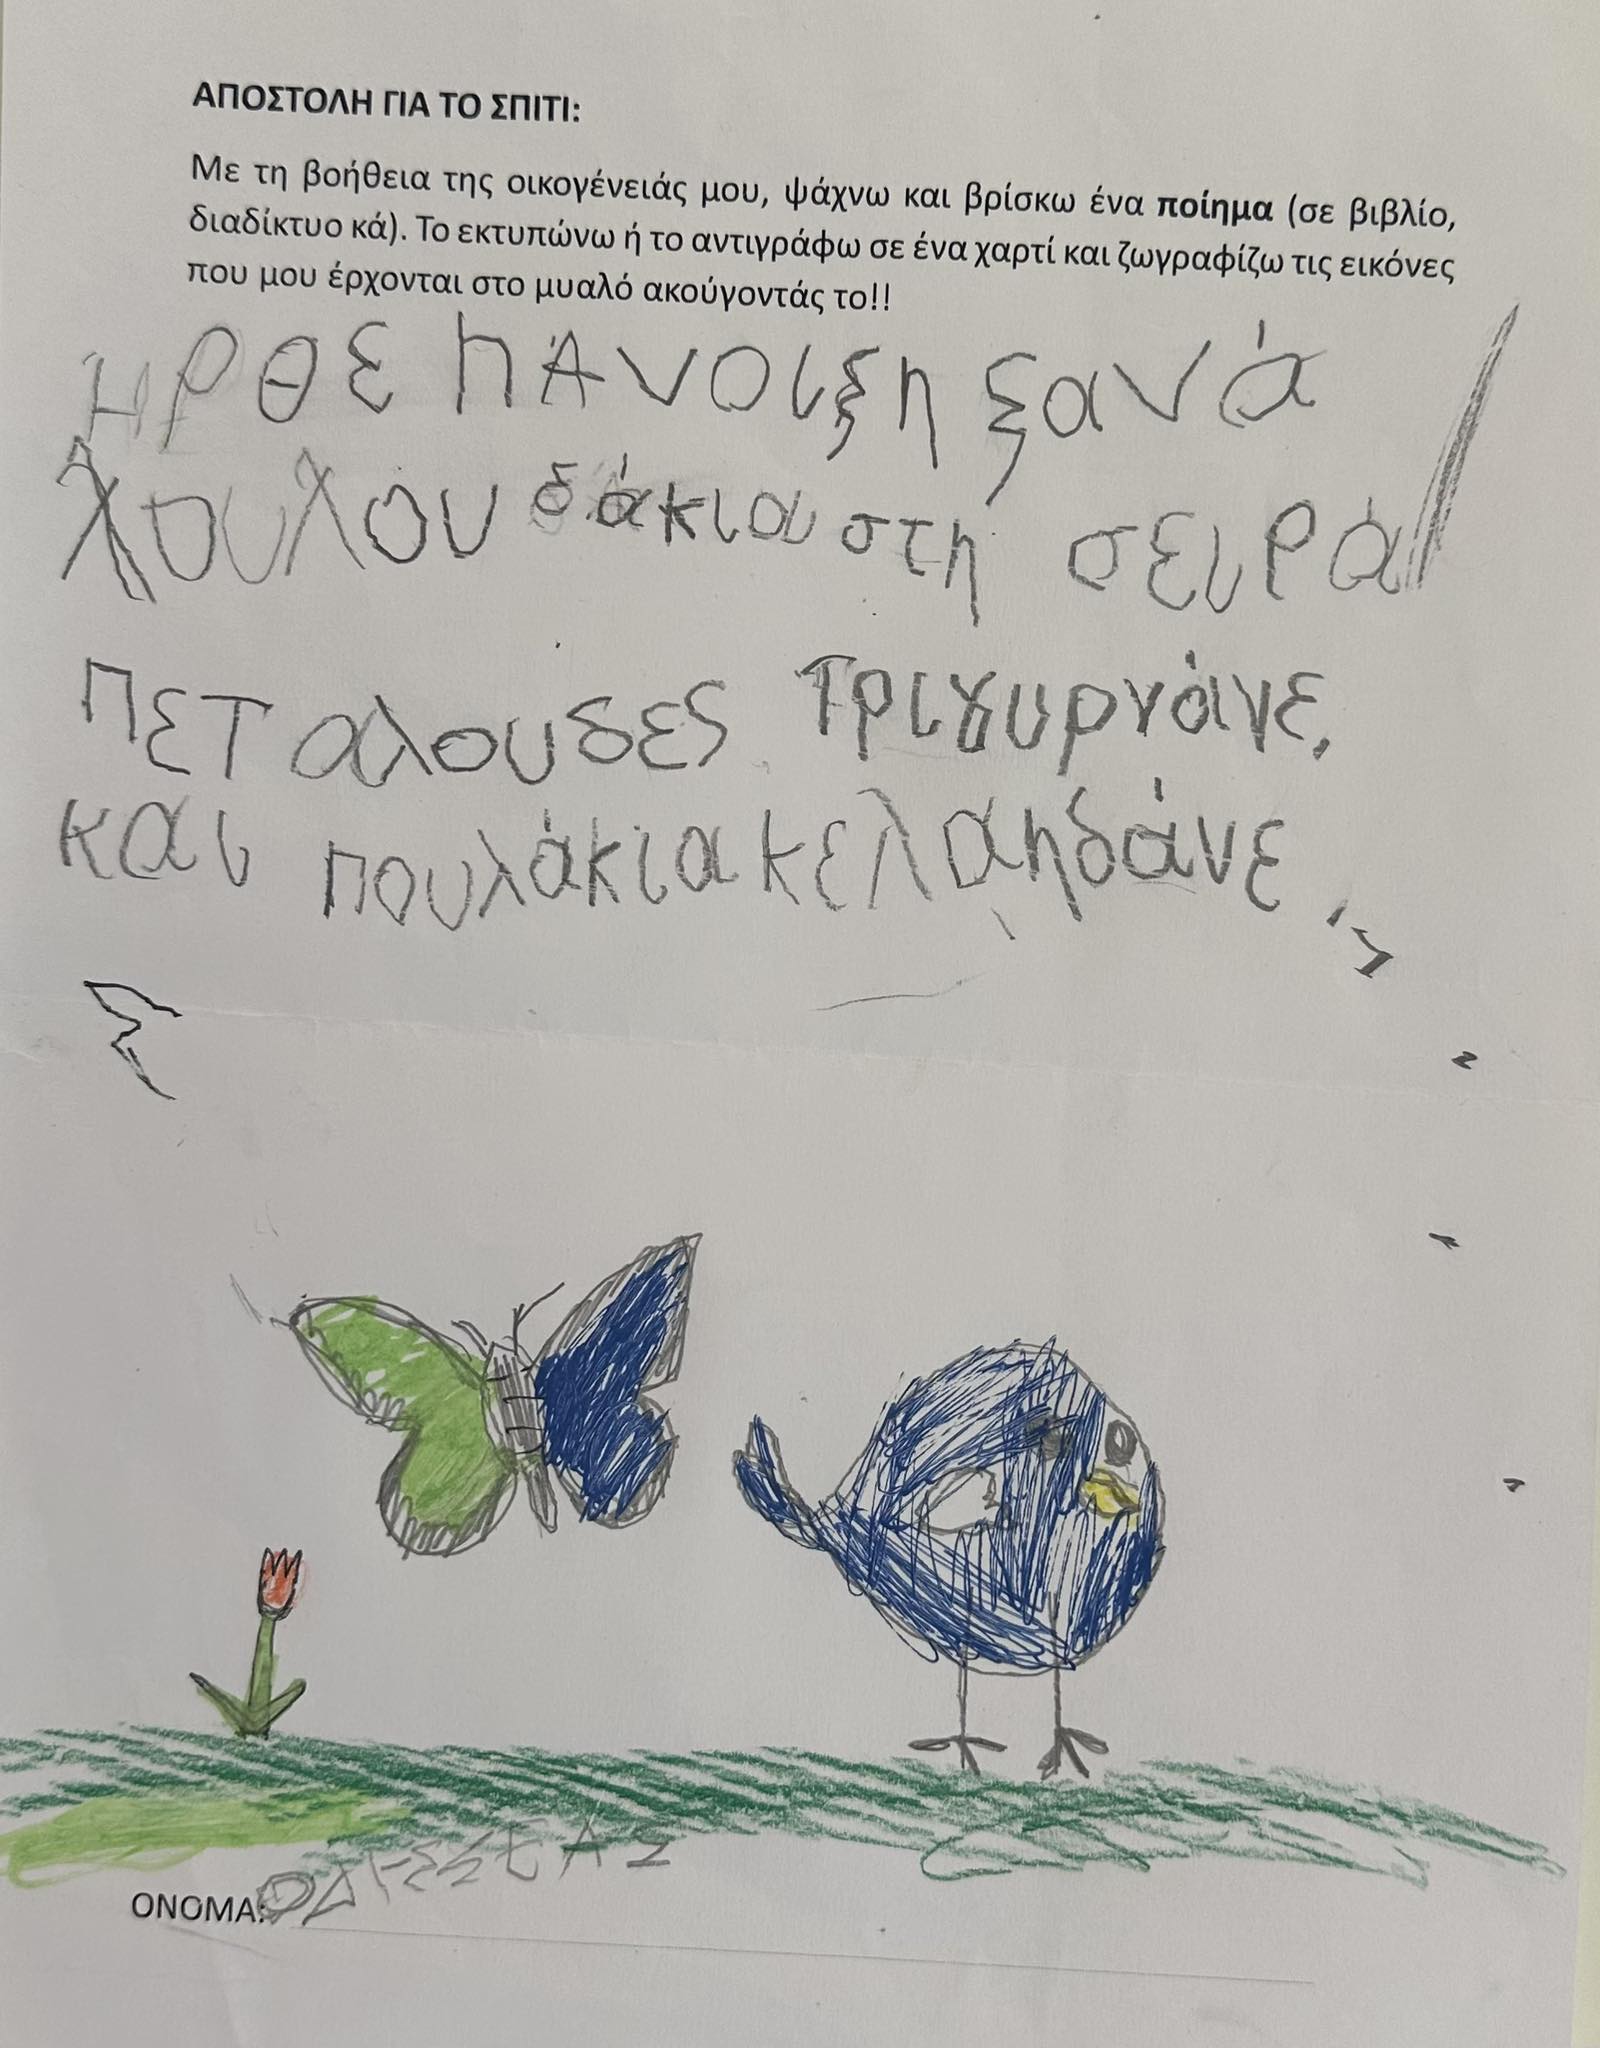 ΑΠΟΣΤΟΛΗ ΓΙΑ ΤΟ ΣΠΙΤΙ:
Με τη βοήθεια της οικογένειάς μου, ψάχνω και βρίσκω ένα ποίημα (σε βιβλίο,
διαδίκτυο κά). Το εκτυπώνω ή το αντιγράφω σε ένα χαρτί και ζωγραφίζω τις εικόνες
που μου έρχονται στο μυαλό ακούγοντάς το!!
ΗΡθε η Ανοιξη ξανά
λουλουδάκια στη σειρά
Πεταλουδες Τριγυρνάνε,
και πουλάκια κελαηδάνε,
ΟΝΟΜΑ: